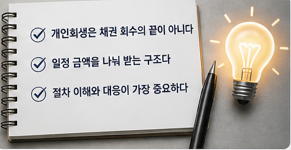 개인회생은 채권 회수의 끝이 아니다
일정 금액을 나눠 받는 구조다
절차 이해와 대응이 가장 중요하다